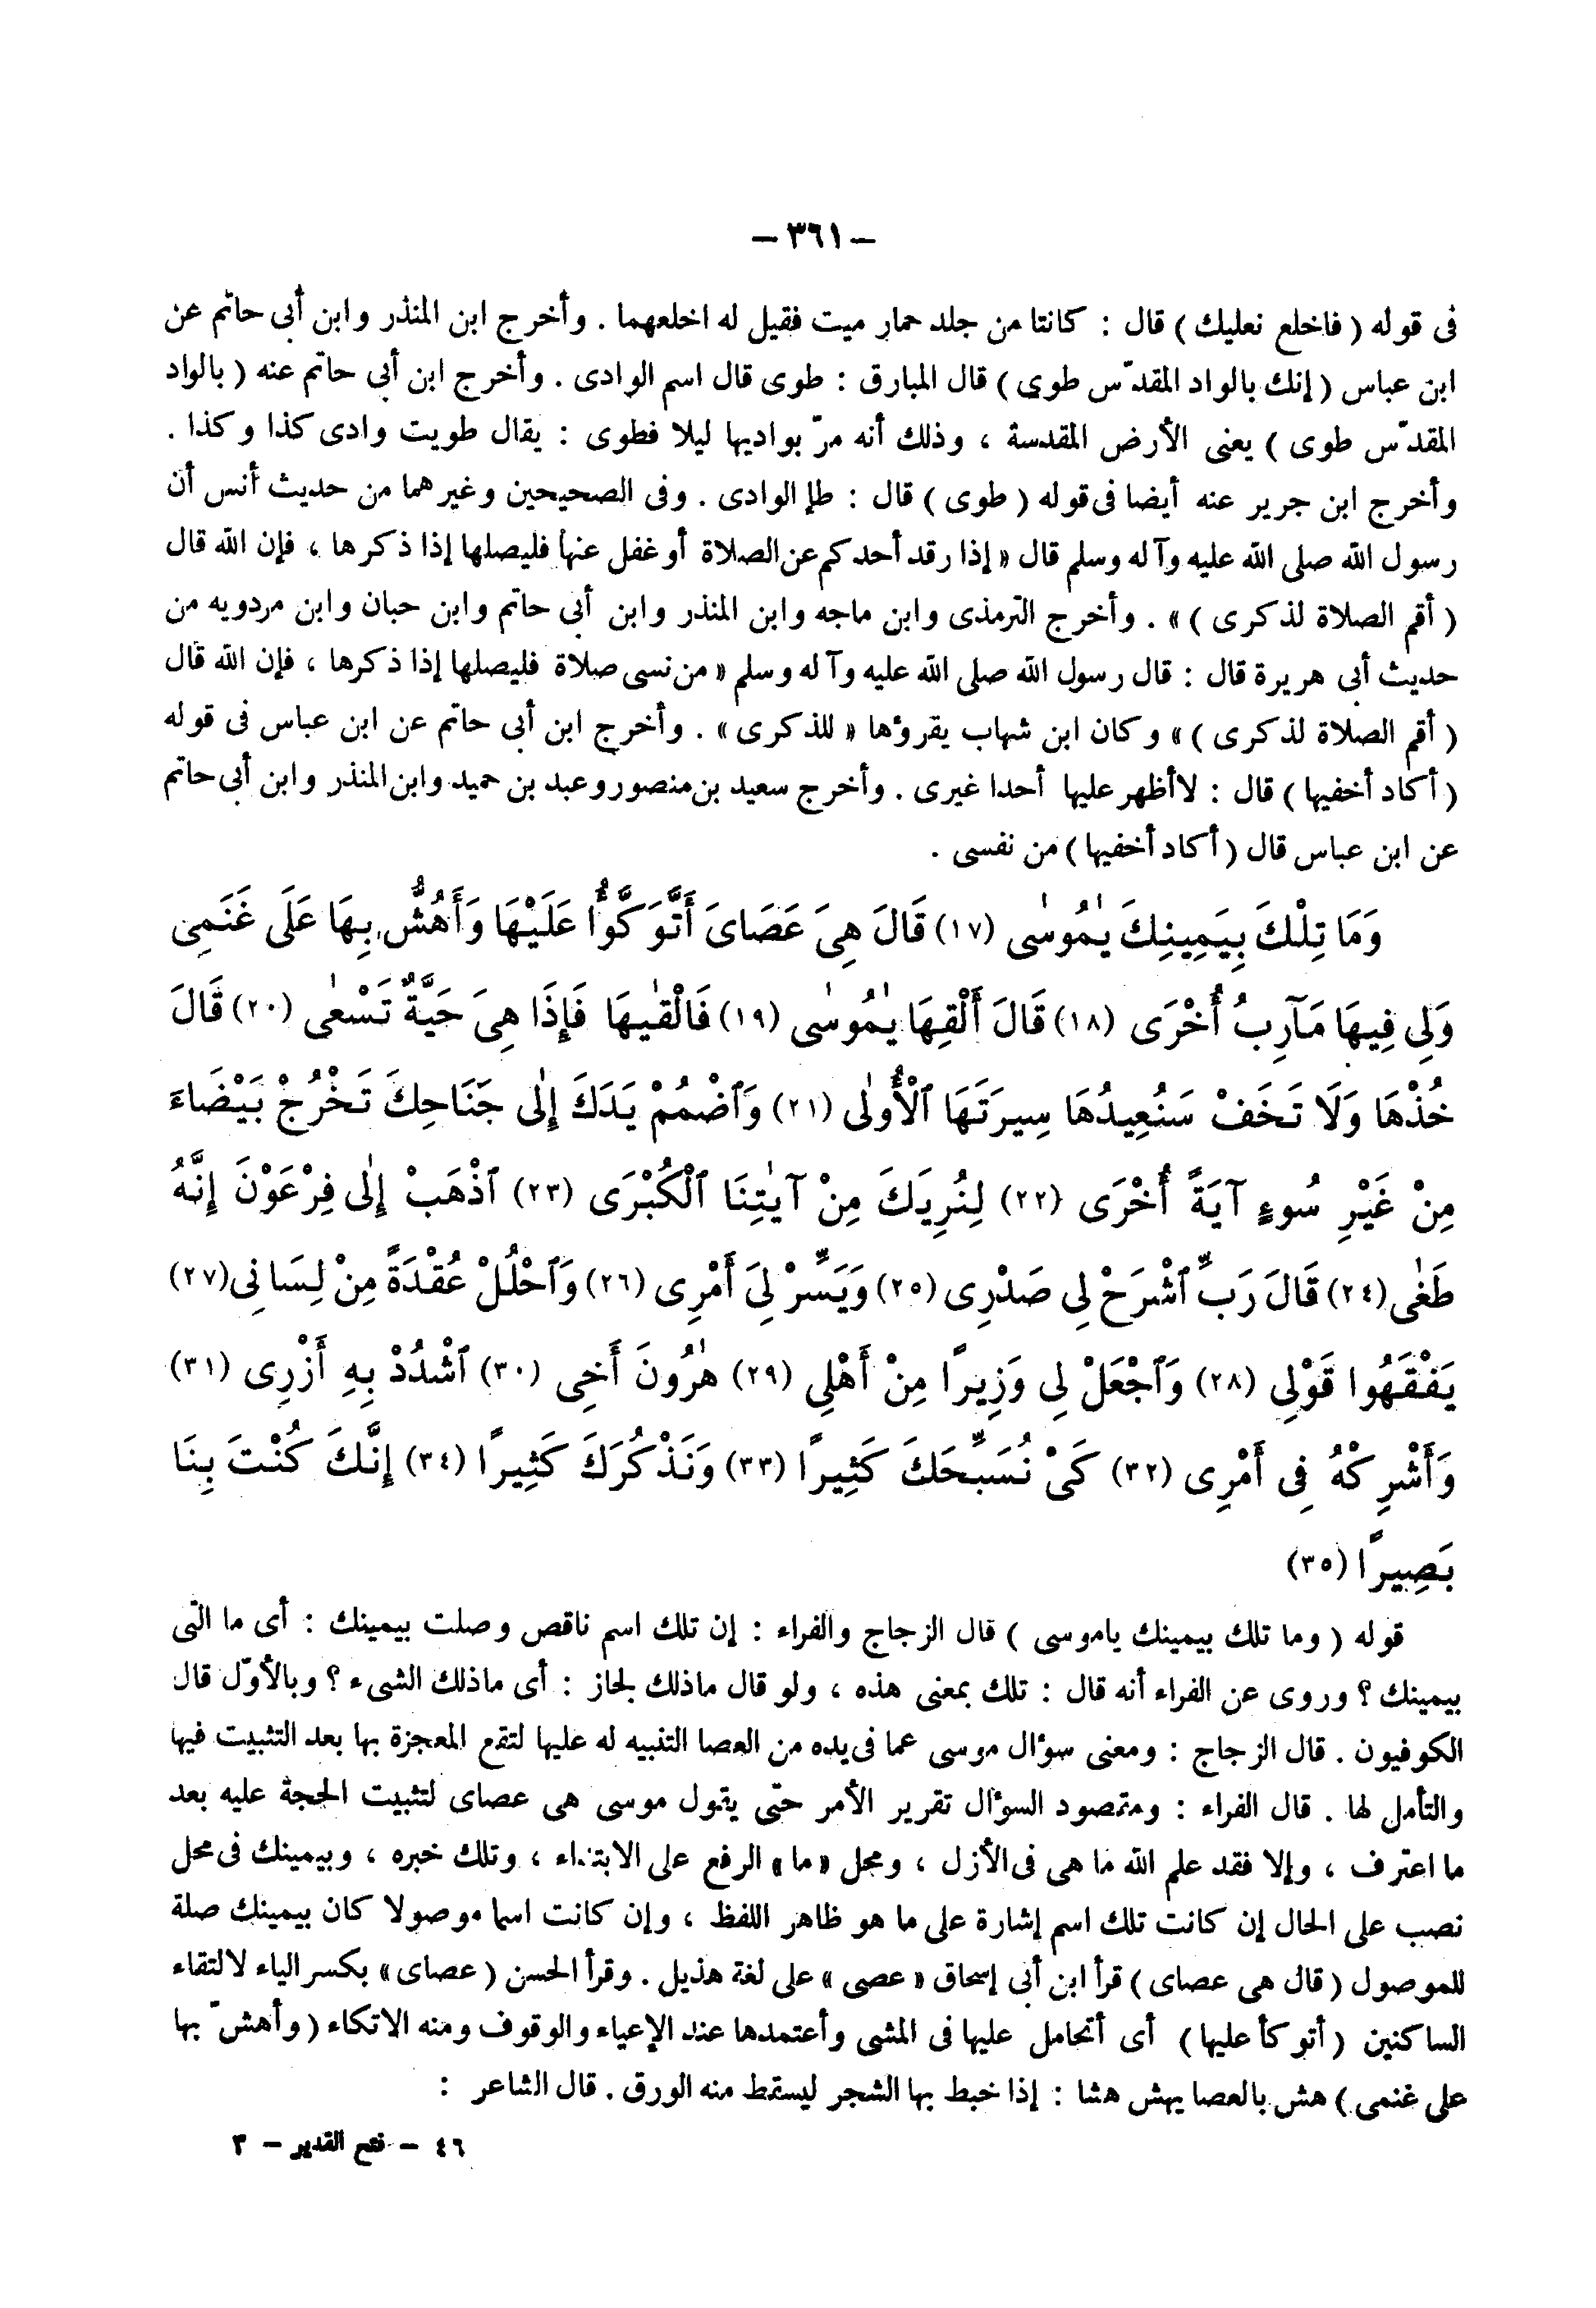 — ٣٦١ —
فى قوله ( فاخلع نعليك ) قال : كانتا من جلد حمار ميت فقيل له اخلعهما . وأخرج ابن المنذر وابن أبى حاتم عن
ابن عباس ( إنك بالواد المقدّس طوى ) قال المبارق : طوى قال اسم الوادى . وأخرج ابن أبى حاتم عنه ( بالواد
المقدّس طوى ) يعنى الأرض المقدسة ، وذلك أنه مرّ بواديها ليلا فطوى : يقال طويت وادى كذا وكذا .
وأخرج ابن جرير عنه أيضا فى قوله ( طوى ) قال : طإ الوادى . وفى الصحيحين وغيرهما من حديث أنس أن
رسول الله صلى الله عليه وآله وسلم قال « إذا رقد أحدكم عن الصلاة أو غفل عنها فليصلها إذا ذكرها ، فإن الله قال
( أقم الصلاة لذكرى ) » . وأخرج الترمذى وابن ماجه وابن المنذر وابن أبى حاتم وابن حبان وابن مردويه من
حديث أبى هريرة قال : قال رسول الله صلى الله عليه وآله وسلم « من نسى صلاة فليصلها إذا ذكرها ، فإن الله قال
( أقم الصلاة لذكرى ) » وكان ابن شهاب يقرؤها « للذكرى » . وأخرج ابن أبى حاتم عن ابن عباس فى قوله
( أكاد أخفيها ) قال : لا أظهر عليها أحدا غيرى . وأخرج سعيد بن منصور وعبد بن حميد وابن المنذر وابن أبى حاتم
عن ابن عباس قال ( أكاد أخفيها ) من نفسى .
وَمَا تِلْكَ بِيَمِينِكَ يٰمُوسٰى (١٧) قَالَ هِىَ عَصَاىَ أَتَّوَكَّؤُا عَلَيْهَا وَأَهُشُّ بِهَا عَلَى غَنَمِى
وَلِى فِيهَا مَآرِبُ أُخْرَى (١٨) قَالَ أَلْقِهَا يٰمُوسٰى (١٩) فَالْقٰيهَا فَإِذَا هِىَ حَيَّةٌ تَسْعٰى (٢٠) قَالَ
خُذْهَا وَلَا تَخَفْ سَنُعِيدُهَا سِيرَتَهَا ٱلْأُولٰى (٢١) وَٱضْمُمْ يَدَكَ إِلٰى جَنَاحِكَ تَخْرُجْ بَيْضَاءَ
مِنْ غَيْرِ سُوءٍ آيَةً أُخْرَى (٢٢) لِنُرِيَكَ مِنْ آيٰتِنَا ٱلْكُبْرَى (٢٣) ٱذْهَبْ إِلٰى فِرْعَوْنَ إِنَّهُ
طَغٰى (٢٤) قَالَ رَبِّ ٱشْرَحْ لِى صَدْرِى (٢٥) وَيَسِّرْ لِىَ أَمْرِى (٢٦) وَٱحْلُلْ عُقْدَةً مِنْ لِسَانِى (٢٧)
يَفْقَهُوا قَوْلِى (٢٨) وَٱجْعَلْ لِى وَزِيرًا مِنْ أَهْلِى (٢٩) هٰرُونَ أَخِى (٣٠) ٱشْدُدْ بِهِ أَزْرِى (٣١)
وَأَشْرِكْهُ فِى أَمْرِى (٣٢) كَىْ نُسَبِّحَكَ كَثِيرًا (٣٣) وَنَذْكُرَكَ كَثِيرًا (٣٤) إِنَّكَ كُنْتَ بِنَا
بَصِيرًا (٣٥)
قوله ( وما تلك بيمينك ياموسى ) قال الزجاج والفراء : إن تلك اسم ناقص وصلت بيمينك : أى ما التى
بيمينك ؟ وروى عن الفراء أنه قال : تلك بمعنى هذه ، ولو قال ماذلك لجاز : أى ماذلك الشىء ؟ وبالأوّل قال
الكوفيون . قال الزجاج : ومعنى سؤال موسى عما فى يده من العصا التنبيه له عليها لتقع المعجزة بها بعد التثبيت فيها
والتأمل لها . قال الفراء : ومقصود السؤال تقرير الأمر حتى يقول موسى هى عصاى لتثبيت الحجة عليه بعد
ما اعترف ، وإلا فقد علم الله ما هى فى الأزل ، ومحل « ما » الرفع على الابتداء ، وتلك خبره ، وبيمينك فى محل
نصب على الحال إن كانت تلك اسم إشارة على ما هو ظاهر اللفظ ، وإن كانت اسما موصولا كان بيمينك صلة
للموصول ( قال هى عصاى ) قرأ ابن أبى إسحاق « عصى » على لغة هذيل . وقرأ الحسن ( عصاى » بكسر الياء لالتقاء
الساكنين ( أتوكأ عليها ) أى أتحامل عليها فى المشى وأعتمدها عند الإعياء والوقوف ومنه الاتكاء ( وأهشّ بها
على غنمى ) هش بالعصا يهش هشا : إذا خبط بها الشجر ليسقط منه الورق . قال الشاعر :
٤٦ — فتح القدير — ٣